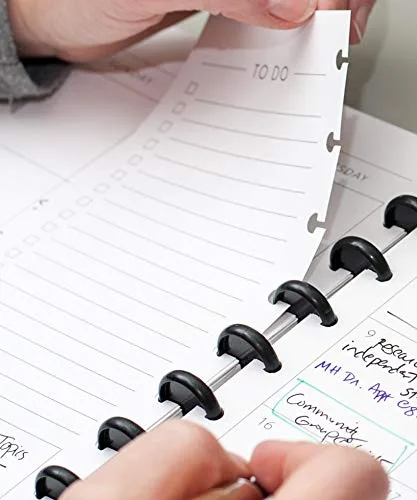 TO DO
SDAY
9
research
independent
MH Dr. Appt @8
Community
16
Topics